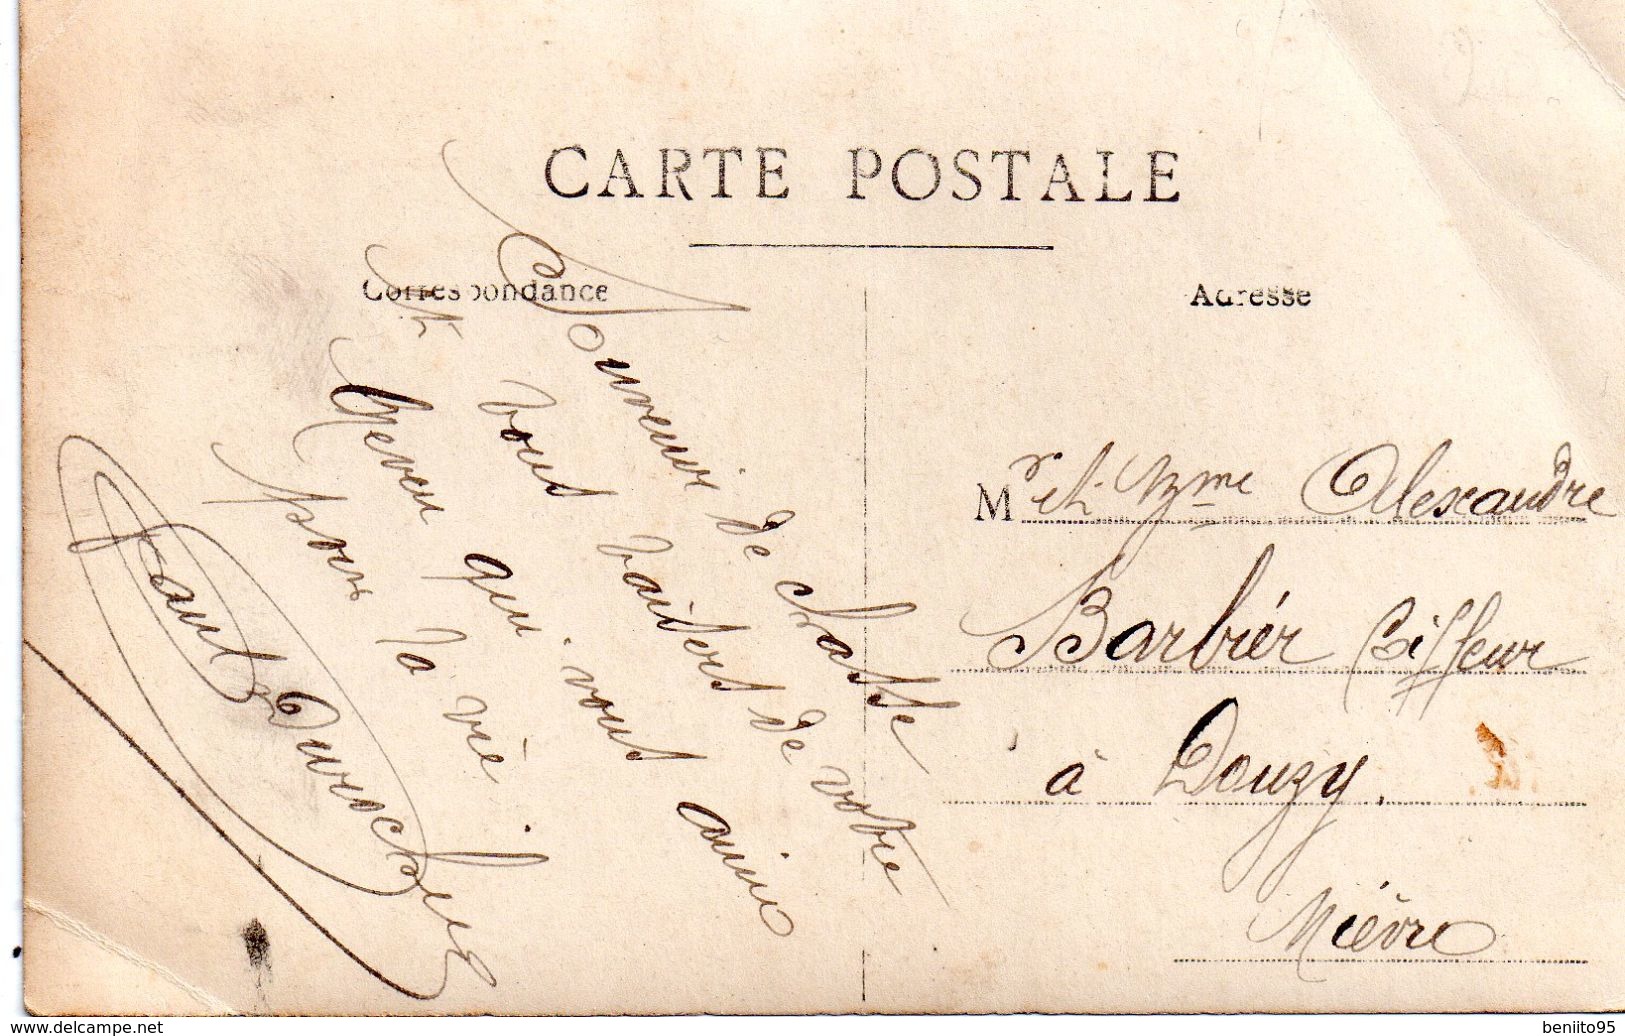 CARTE POSTALE
Correspondance
Souvenir de chasse
et bons baisers de votre
neveu qui vous aime
pour la vie
Paul Durocher
Adresse
Mr et Mme Alexandre
Barbier Coiffeur
à Douzy.
Nièvre
www.delcampe.net
beniito95